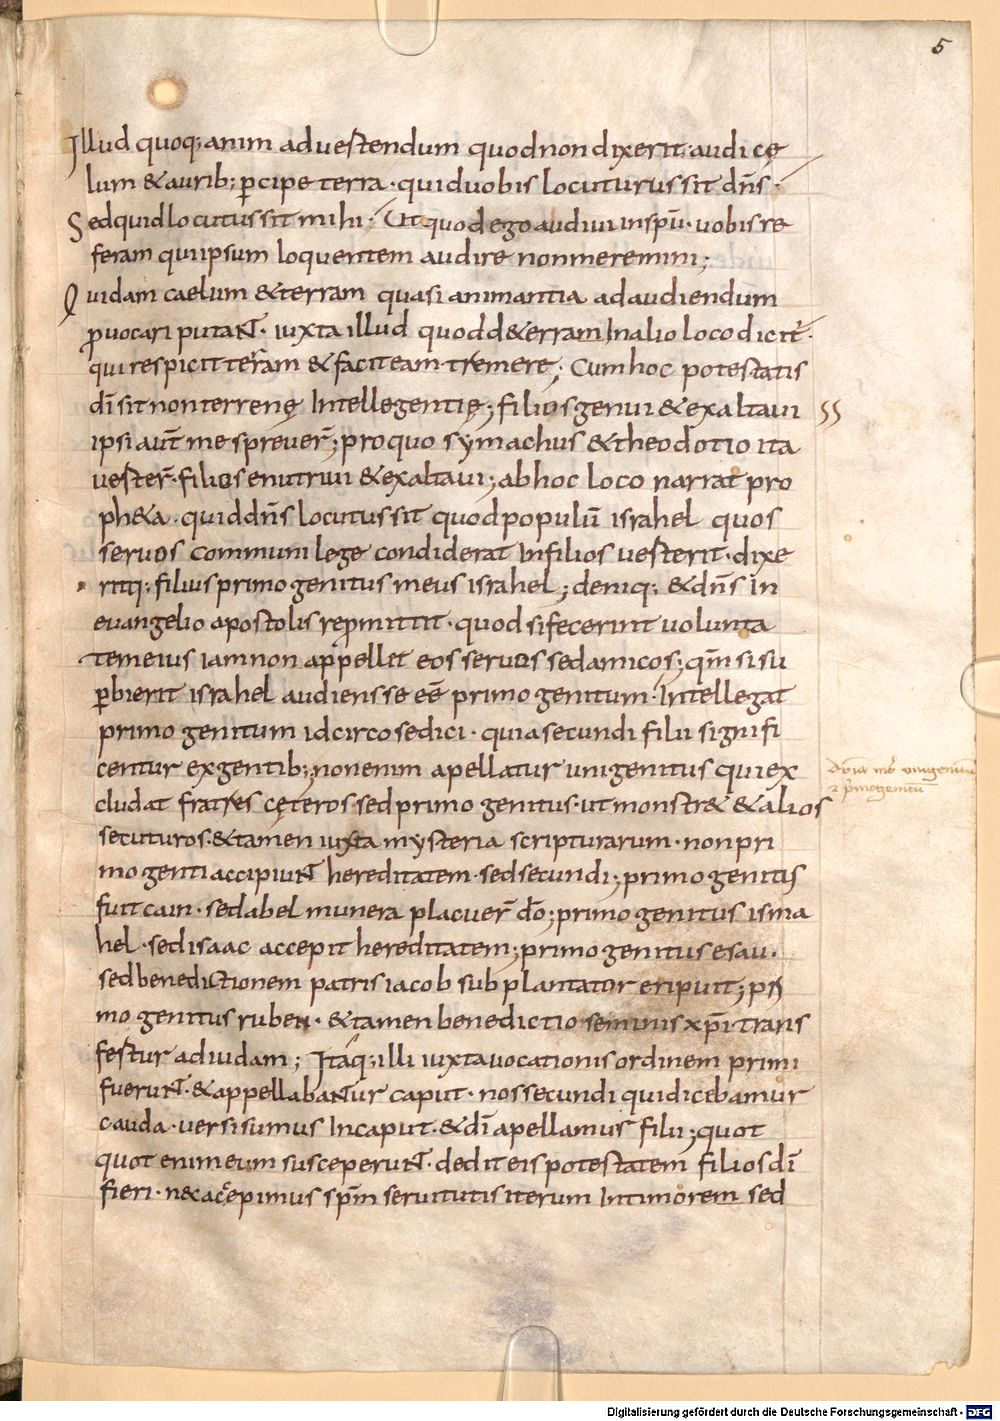 5
Illud quoq; animaduertendum quod non dixerit· audi cę
lum & aurib; p̄cipe terra· quid uobis locuturus sit dn̄s·
Sed quid locutus sit mihi· Ut quod ego audiui in sp̄u· uobis re
feram qui ipsum loquentem audire non meremini;
Quidam caelum & terram quasi animantia ad audiendum
ꝓuocari putant· iuxta illud quod d& erram In alio loco dicit̄·
qui respicit terram & facit eam tremere; Cum hoc potestatis
dī sit non terrenę Intellegentię; filios genui & exaltaui
ipsi aut̄ me spreuer̄; pro quo symachus & theodotio ita
uerter̄· filios enutriui & exaltaui; ab hoc loco narrat pro
ph&a· quid dn̄s locutus sit quod populū israhel quos
seruos communi lege condiderat In filios uerterit· dixe
ritq; filius primogenitus meus israhel; deniq; & dn̄s In
euangelio apostolis repromittit· quod si fecerint uolunta
tem eius iam non appellet eos seruos sed amicos; qm̄ si su
p̄bierit israhel audiens se eē primogenitum· Intellegat
primogenitum idcirco se dici· quia secundi filii signifi
centur ex gentib; non enim apellatur unigenitus qui ex
cludat fratres cęteros sed primogenitus· ut monstr& & alios
secuturos· & tamen iuxta mysteria scripturarum· non pri
mogeniti accipiunt hereditatem· sed secundi; primogenitus
fuit cain· sed abel munera placuer̄ dō; primogenitus isma
hel· sed isaac accepit hereditatem; primogenitus esau·
sed benedictionem patris iacob subplantator eripuit; pri
mogenitus ruben· & tamen benedictio seminis xp̄i· trans
fertur ad iudam; Itaq; illi iuxta uocationis ordinem primi
fuerunt· & appellabantur caput· nos secundi qui dicebamur
cauda· uersi sumus In caput· & dī apellamur filii; quot
quot enim eum susceperunt· dedit eis potestatem filios dī
fieri· n& accepimus sp̄m seruitutis iterum In timorem sed
Digitalisierung gefördert durch die Deutsche Forschungsgemeinschaft - DFG